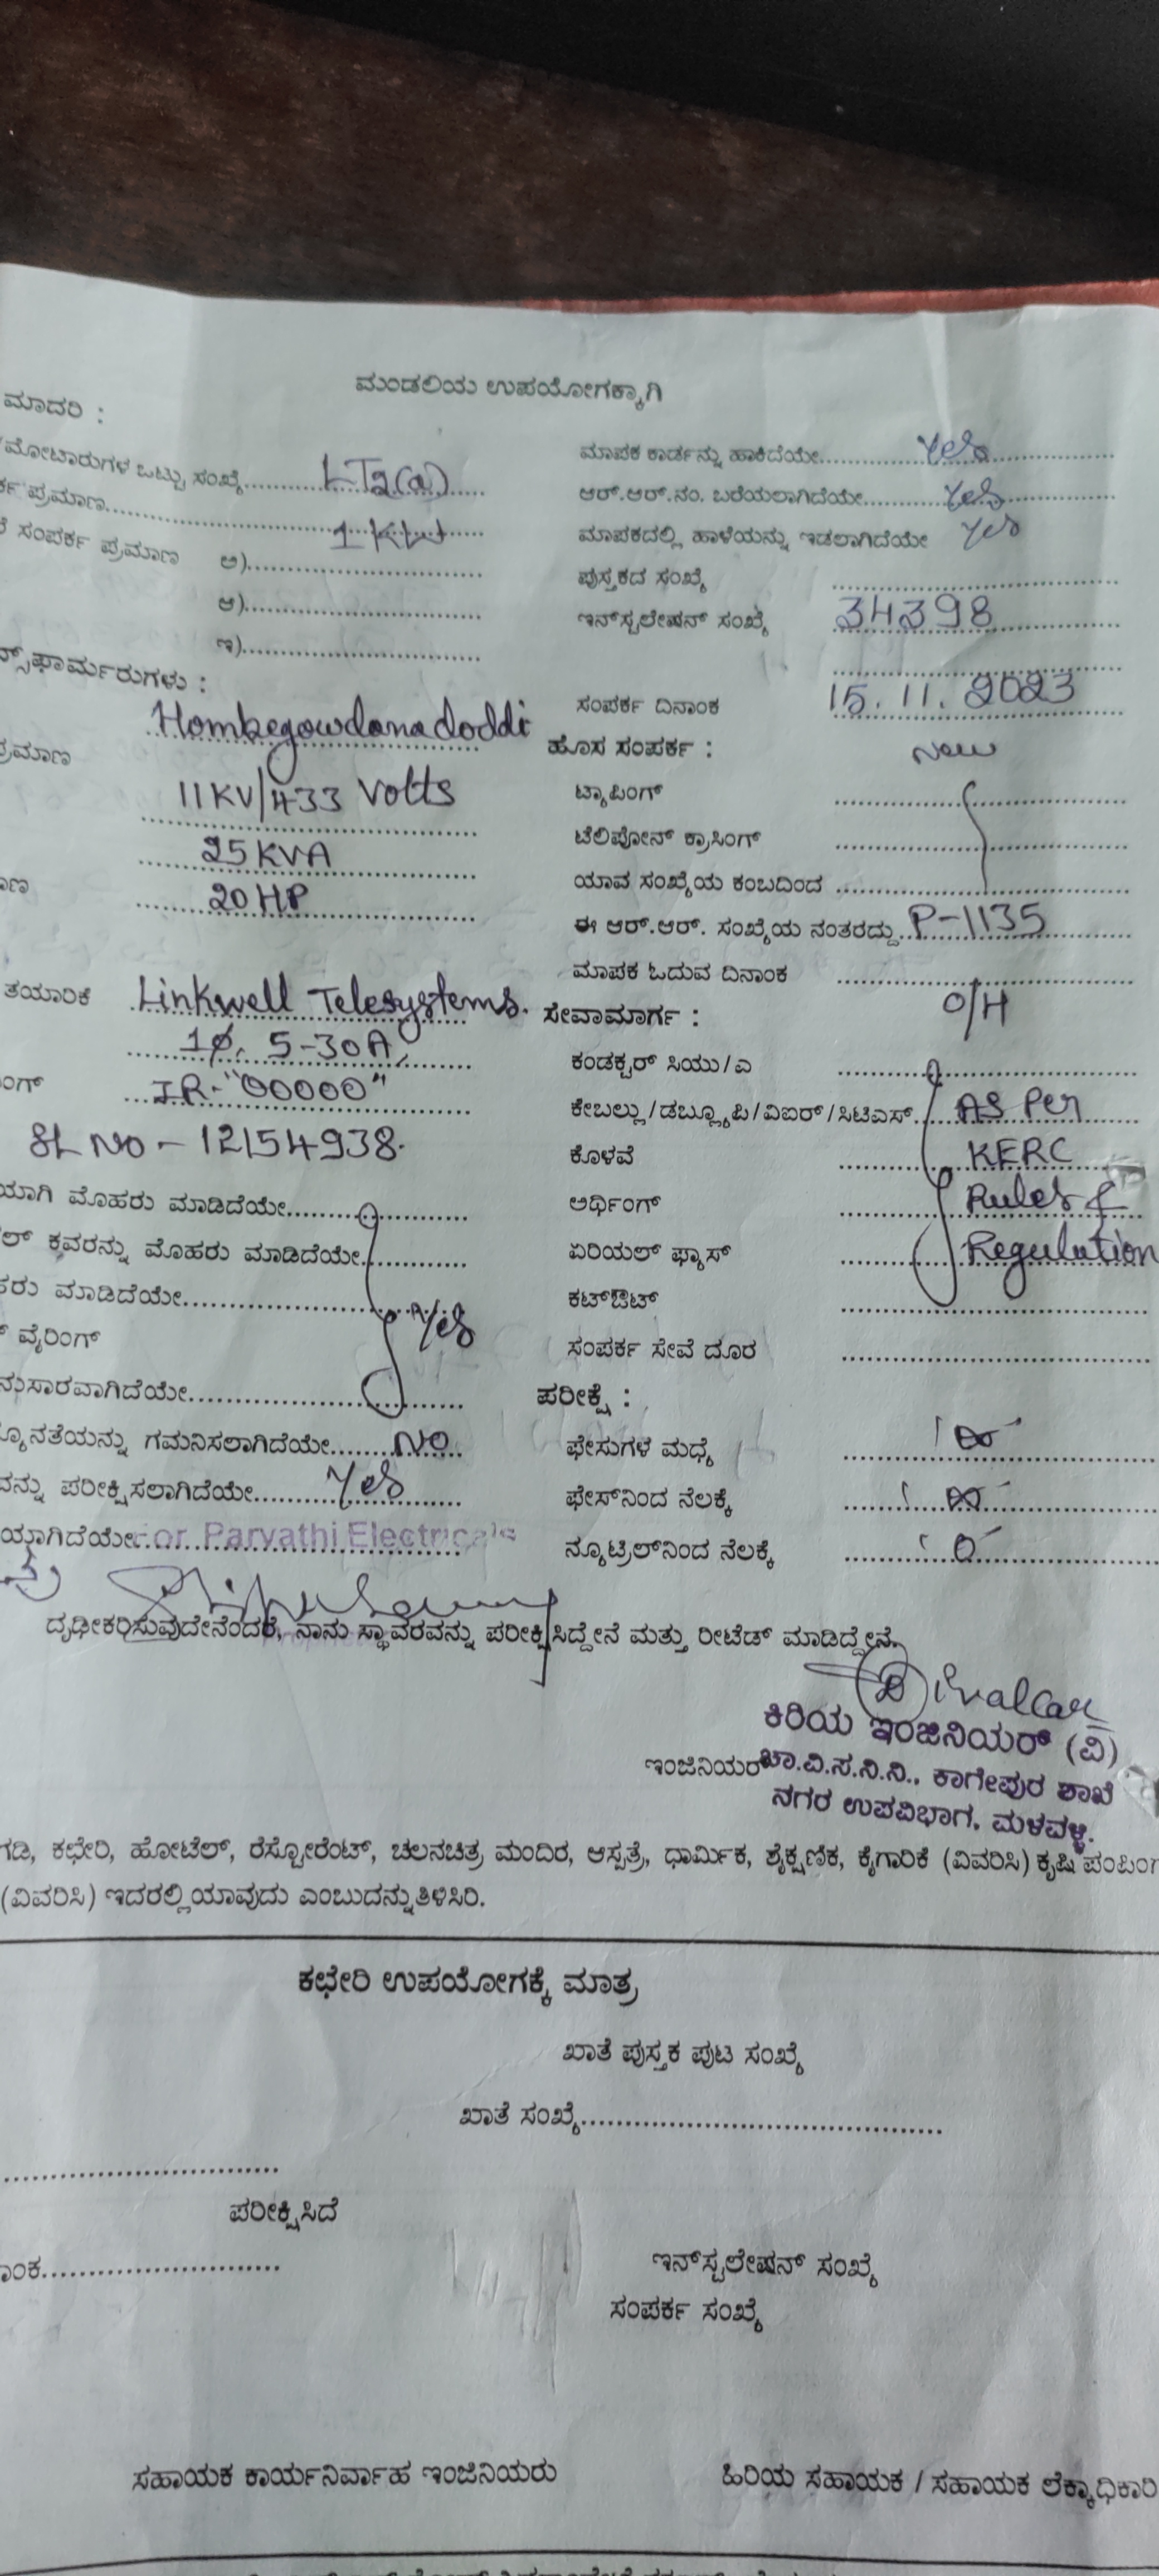 ಮಂಡಲಿಯ ಉಪಯೋಗಕ್ಕಾಗಿ
ಮಾದರಿ :
ಮೋಟಾರುಗಳ ಒಟ್ಟು ಸಂಖ್ಯೆ.......... LT2(a)
ಪ್ರಮಾಣ.......... 1 KW
ಸಂಪರ್ಕ ಪ್ರಮಾಣ ಅ)..........
ಆ)..........
ಇ)..........
Hombegowdanadoddi
ಪ್ರಮಾಣ
11KV/433 Volts
25 KVA
20 HP
ತಯಾರಿಕೆ Linkwell Telesystems.
1ϕ, 5-30A,
IR-"00000"
SL NO - 12154938.
ಮೊಹರು ಮಾಡಿದೆಯೇ..........
ಕವರನ್ನು ಮೊಹರು ಮಾಡಿದೆಯೇ..........
ಮಾಡಿದೆಯೇ.......... Yes
ವೈರಿಂಗ್
..........
ಗಮನಿಸಲಾಗಿದೆಯೇ.......... NO
ಪರೀಕ್ಷಿಸಲಾಗಿದೆಯೇ.......... Yes
For Parvathi Electricals
ಮಾಪಕ ಕಾರ್ಡನ್ನು ಹಾಕಿದೆಯೇ.......... Yes
ಆರ್.ಆರ್.ನಂ. ಬರೆಯಲಾಗಿದೆಯೇ.......... Yes
ಮಾಪಕದಲ್ಲಿ ಹಾಳೆಯನ್ನು ಇಡಲಾಗಿದೆಯೇ Yes
ಪುಸ್ತಕದ ಸಂಖ್ಯೆ ..........
ಇನ್‌ಸ್ಟಲೇಷನ್ ಸಂಖ್ಯೆ 34398
ಸಂಪರ್ಕ ದಿನಾಂಕ 15.11.2023
ಹೊಸ ಸಂಪರ್ಕ : New
ಟ್ಯಾಪಿಂಗ್ ..........
ಟೆಲಿಪೋನ್ ಕ್ರಾಸಿಂಗ್ ..........
ಯಾವ ಸಂಖ್ಯೆಯ ಕಂಬದಿಂದ ..........
ಈ ಆರ್.ಆರ್. ಸಂಖ್ಯೆಯ ನಂತರದ್ದು.. P-1135
ಮಾಪಕ ಓದುವ ದಿನಾಂಕ ..........
ಸೇವಾಮಾರ್ಗ : O/H
ಕಂಡಕ್ಟರ್ ಸಿಯು/ಎ ..........
ಕೇಬಲ್ಲು/ಡಬ್ಲ್ಯೂಪಿ/ವಿಐರ್/ಸಿಟಿಎಸ್.. AS Per
ಕೊಳವೆ KERC
ಅರ್ಥಿಂಗ್ Rules &
ಏರಿಯಲ್ ಫ್ಯೂಸ್ Regulation
ಕಟ್ಔಟ್ ..........
ಸಂಪರ್ಕ ಸೇವೆ ದೂರ ..........
ಪರೀಕ್ಷೆ :
ಫೇಸುಗಳ ಮಧ್ಯೆ ..........
ಫೇಸ್‌ನಿಂದ ನೆಲಕ್ಕೆ ..........
ನ್ಯೂಟ್ರಲ್‌ನಿಂದ ನೆಲಕ್ಕೆ ..........
ದೃಢೀಕರಿಸುವುದೇನೆಂದರೆ, ನಾನು ಸ್ಥಾವರವನ್ನು ಪರೀಕ್ಷಿಸಿದ್ದೇನೆ ಮತ್ತು ರೀಟೆಡ್ ಮಾಡಿದ್ದೇನೆ.
ಕಿರಿಯ ಇಂಜಿನಿಯರ್ (ವಿ)
ಇಂಜಿನಿಯರ್ ಚಾ.ವಿ.ಸ.ನಿ.ನಿ., ಕಾಗೇಪುರ ಶಾಖೆ
ನಗರ ಉಪವಿಭಾಗ, ಮಳವಳ್ಳಿ.
ಕಛೇರಿ, ಹೋಟೆಲ್, ರೆಸ್ಟೋರೆಂಟ್, ಚಲನಚಿತ್ರ ಮಂದಿರ, ಆಸ್ಪತ್ರೆ, ಧಾರ್ಮಿಕ, ಶೈಕ್ಷಣಿಕ, ಕೈಗಾರಿಕೆ (ವಿವರಿಸಿ) ಕೃಷಿ
(ವಿವರಿಸಿ) ಇದರಲ್ಲಿ ಯಾವುದು ಎಂಬುದನ್ನು ತಿಳಿಸಿರಿ.
ಕಛೇರಿ ಉಪಯೋಗಕ್ಕೆ ಮಾತ್ರ
ಖಾತೆ ಪುಸ್ತಕ ಪುಟ ಸಂಖ್ಯೆ
ಖಾತೆ ಸಂಖ್ಯೆ..........
ಪರೀಕ್ಷಿಸಿದೆ
ಇನ್‌ಸ್ಟಲೇಷನ್ ಸಂಖ್ಯೆ
ಸಂಪರ್ಕ ಸಂಖ್ಯೆ
ಸಹಾಯಕ ಕಾರ್ಯನಿರ್ವಾಹ ಇಂಜಿನಿಯರು
ಹಿರಿಯ ಸಹಾಯಕ / ಸಹಾಯಕ ಲೆಕ್ಕಾಧಿಕಾರಿ